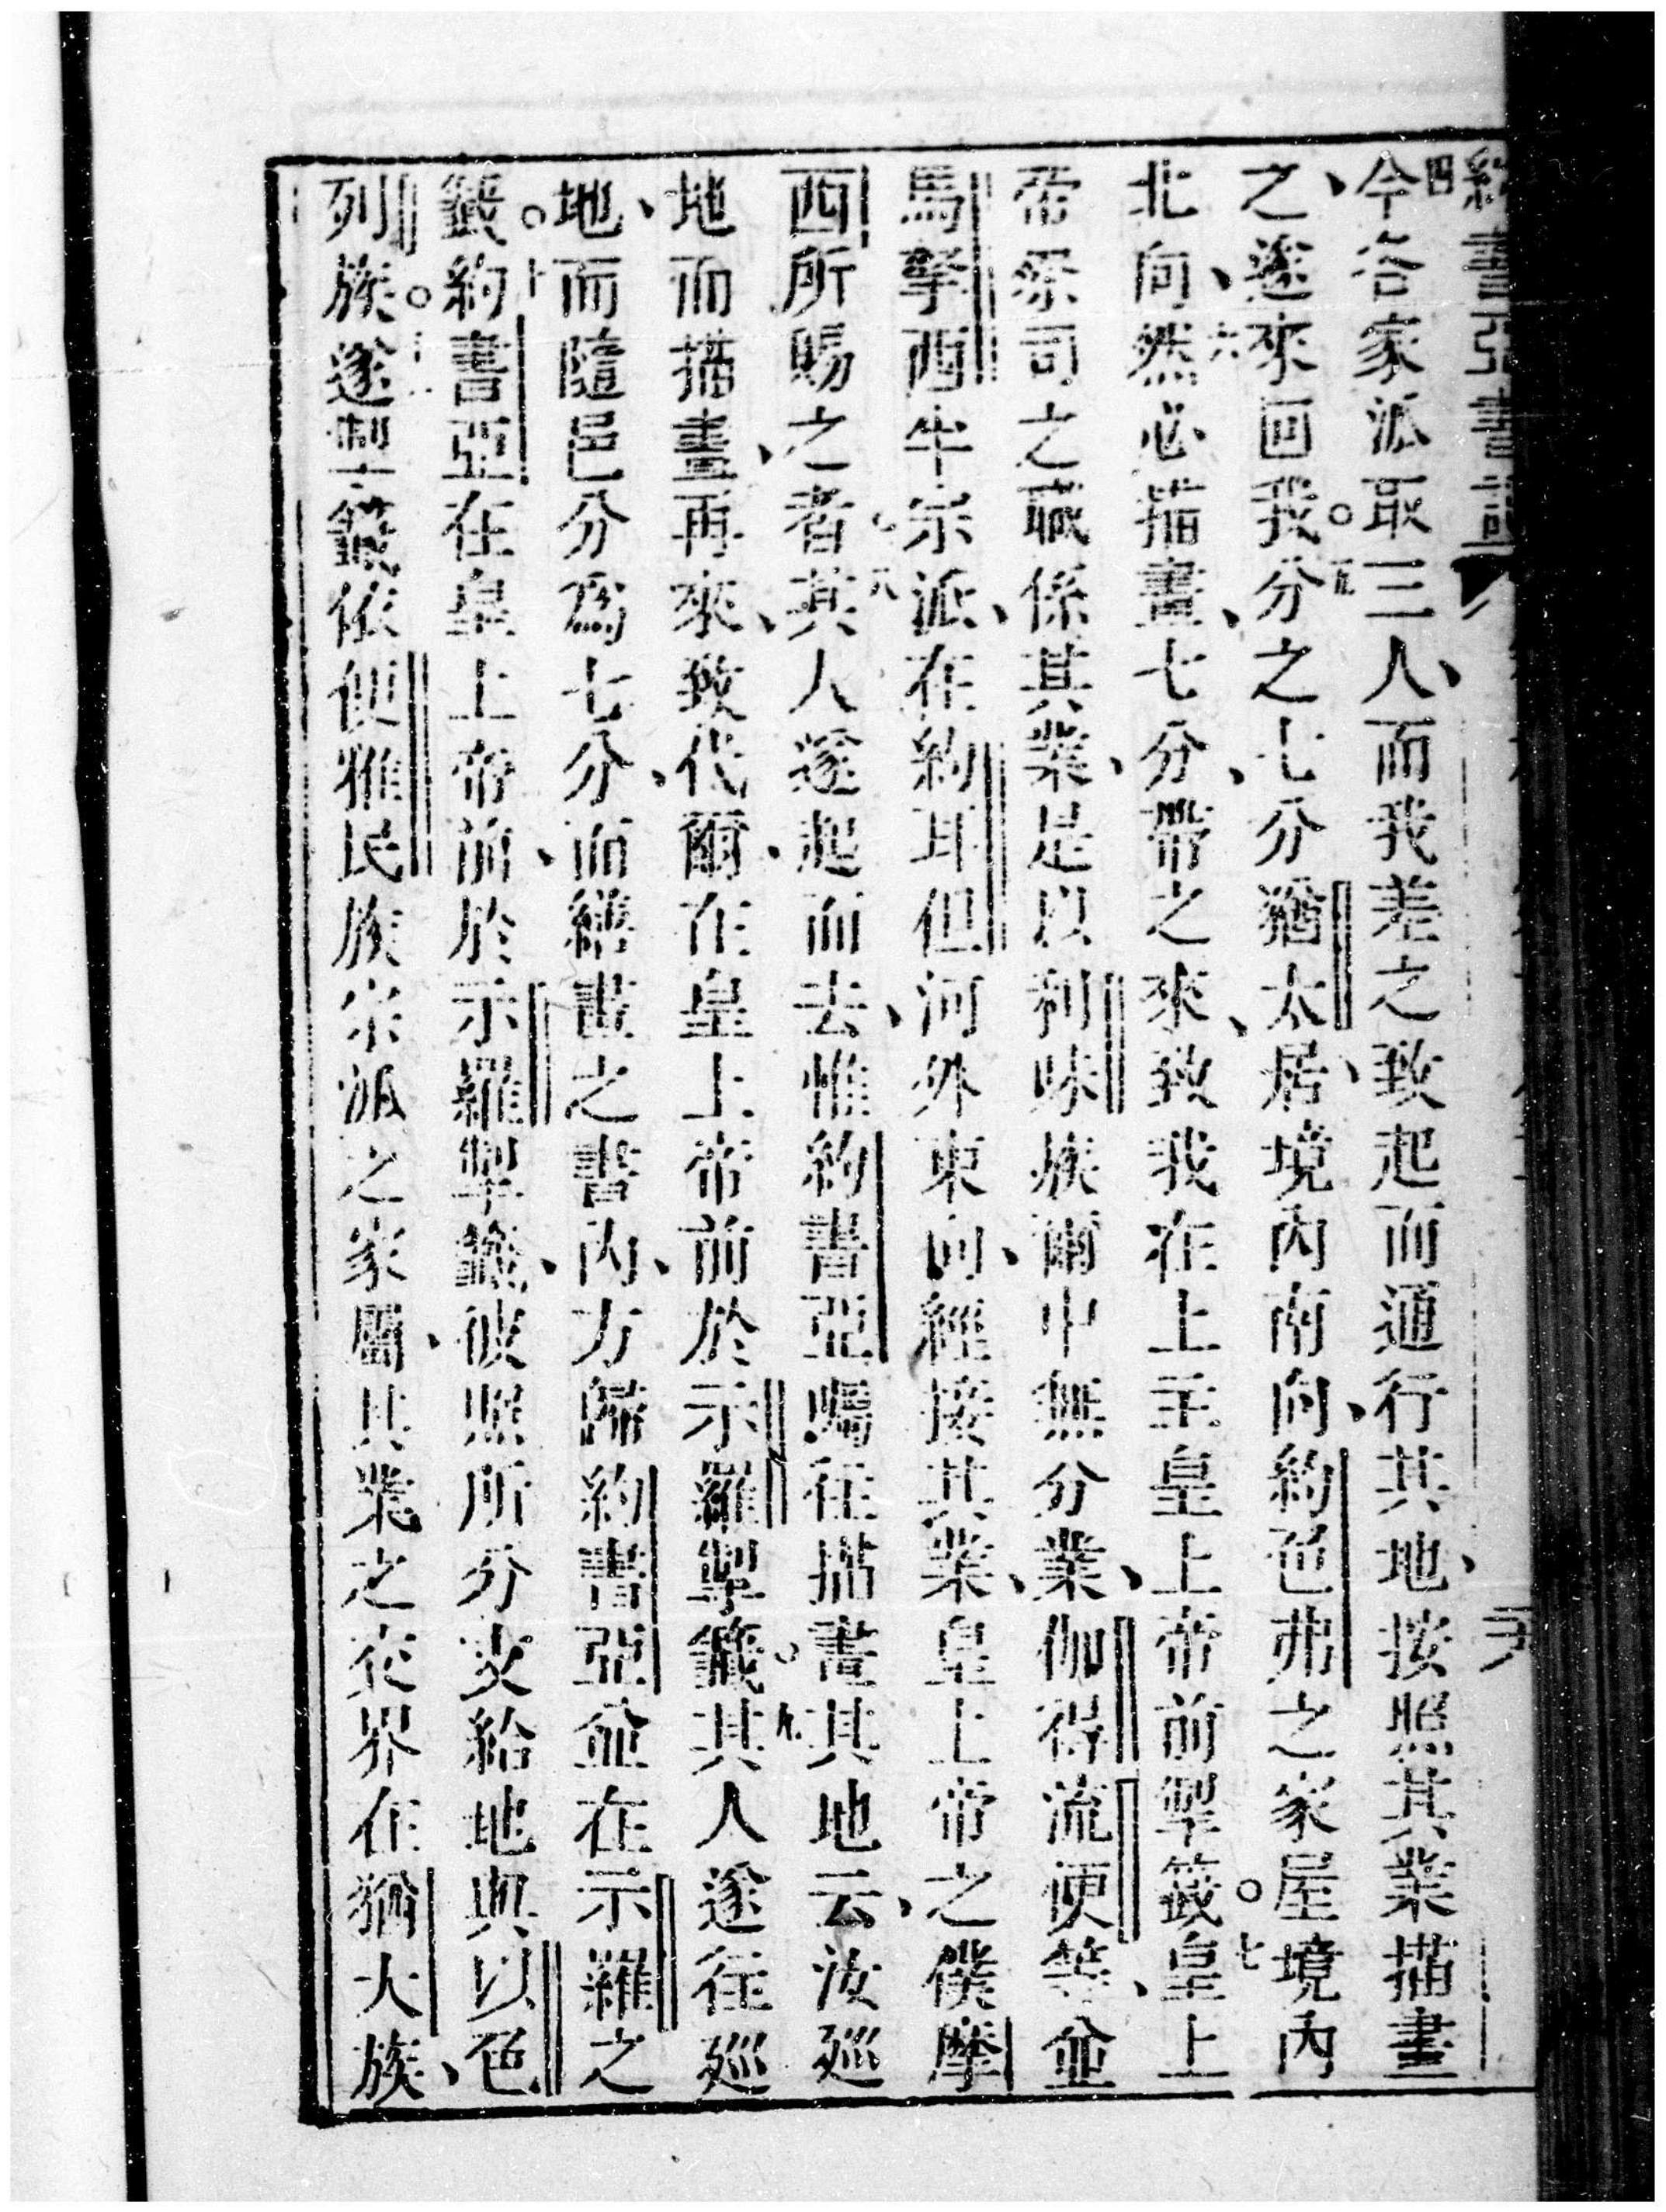 四今各家派取三人、而我差之、致起而通行其地、按照其業描畫
之、遂來囘我。五分之七分、猶太居境內南向、約色弗之家屋境內
北向、六然必描畫七分、帶之來、致我在上主皇上帝前掣籤。七皇上
帝祭司之職係其業、是以利味族爾中無分業、伽得流便等、並
馬拏西半宗派、在約耳但河外東向、經接其業、皇上帝之僕摩
西所賜之者。八其人遂起而去、惟約書亞囑往描畫其地云、汝廵
地而描畫、再來、致代爾在皇上帝前於示羅掣籤。九其人遂往廵
地、而隨邑分爲七分、而繕畫之書內、方歸約書亞並在示羅之
籤。十約書亞在皇上帝前、於示羅掣籤、彼照所分支給地與以色
列族。十一遂掣籤依便雅民族宗派之家屬、其業之交界在猶大族、